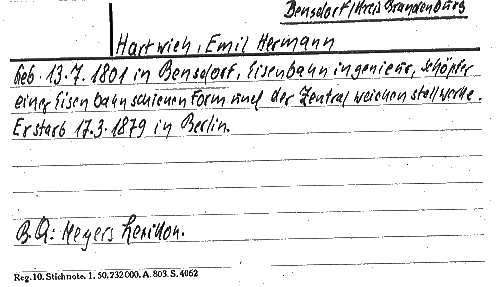 Bensdorf/Kreis Brandenburg
Hartwich, Emil Hermann
Geb. 13.7.1801 in Bensdorf, Eisenbahningenieur, Schöpfer
einer Eisenbahnschienenform und der Zentralweichenstellwerke.
Er starb 17.3.1879 in Berlin.
B.Q: Meyers Lexikon.
Reg.10. Stichnote. 1. 50. 232000. A. 803. S. 4062